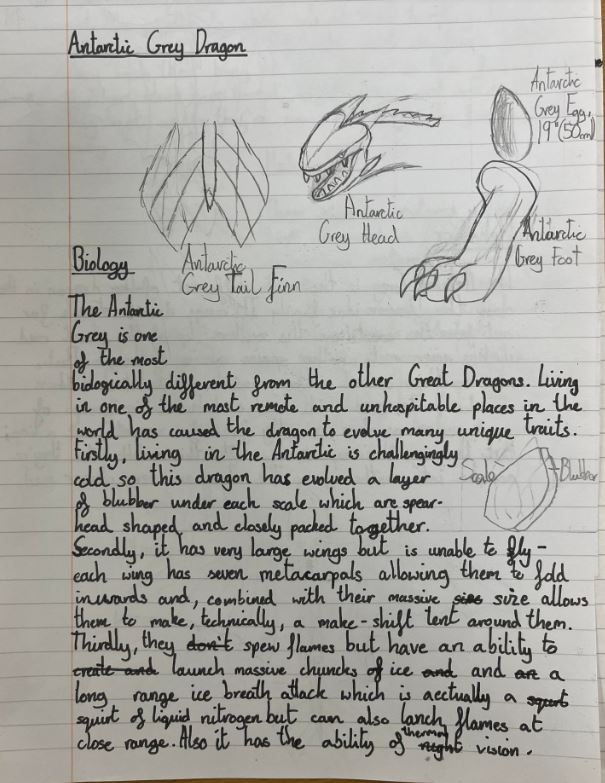 Antarctic Grey Dragon
Antarctic
Grey Egg,
19"(50cm)
Antarctic
Grey Head
Antarctic
Grey Foot
Antarctic
Grey Tail Finn
Biology
The Antartic
Grey is one
of the most
biologically different from the other Great Dragons. Living
in one of the most remote and unhospitable places in the
world has caused the dragon to evolve many unique traits.
Firstly, living in the Antarctic is challengingly
cold so this dragon has evolved a layer
of blubber under each scale which are spear-
head shaped and closely packed together.
Scale
Blubber
Secondly, it has very large wings but is unable to fly-
each wing has seven metacarpals allowing them to fold
inwards and, combined with their massive sizs size allows
them to make, technically, a make-shift tent around them.
Thirdly, they don't spew flames but have an ability to
create and launch massive chuncks of ice and and are a
long range ice breath attack which is aectually a squrt
squirt of liquid nitrogen but can also lanch flames at
close range. Also it has the ability of thermal night vision.